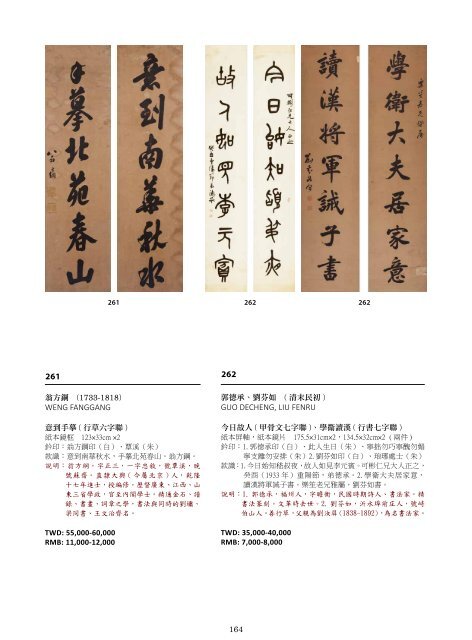 手摹北苑春山
意到南華秋水
讀漢將軍誡子書
學衛大夫居家意
261
262
262
261
翁方綱 (1733-1818)
WENG FANGGANG
意到手摹(行草六字聯)
紙本鏡框 123x33cm ×2
鈐印：翁方綱印(白)、覃溪(朱)
款識：意到南華秋水，手摹北苑春山。翁方綱。
說明：翁方綱，字正三，一字忠敘，號覃溪，晚
號蘇齋。直隸大興(今屬北京)人，乾隆
十七年進士，授編修。歷督廣東、江西、山
東三省學政，官至內閣學士。精通金石、譜
錄、書畫、詞章之學，書法與同時的劉墉、
梁同書、王文治齊名。
TWD: 55,000-60,000
RMB: 11,000-12,000
262
郭德承、劉芬如 (清末民初)
GUO DECHENG, LIU FENRU
今日故人(甲骨文七字聯)、學衛讀漢(行書七字聯)
紙本屏軸，紙本鏡片 175.5x31cm×2，134.5x32cm×2 (兩件)
鈐印：1. 郭德承印(白)、此人生日(朱)、寧拙勿巧寧醜勿媚
寧支離勿安排(朱) 2. 劉芬如印(白)、處士(朱)
款識：1. 今日始知嵇叔夜，故人如見李元賓。可彬仁兄大人正之。
癸酉(1933年)重陽節，弟德承。2. 學衛大夫居家意，
讀漢將軍誡子書。樂笙老兄雅屬，劉芬如書。
說明：1. 郭德承，福州人，字衡，民國時期詩人、書法家。精
書法篆刻。文革時去世。2. 劉芬如，洪水埠前莊人，號
伯山人。善行草。父親為劉汝(1838-1892)，為名書法家。
TWD: 35,000-40,000
RMB: 7,000-8,000
164